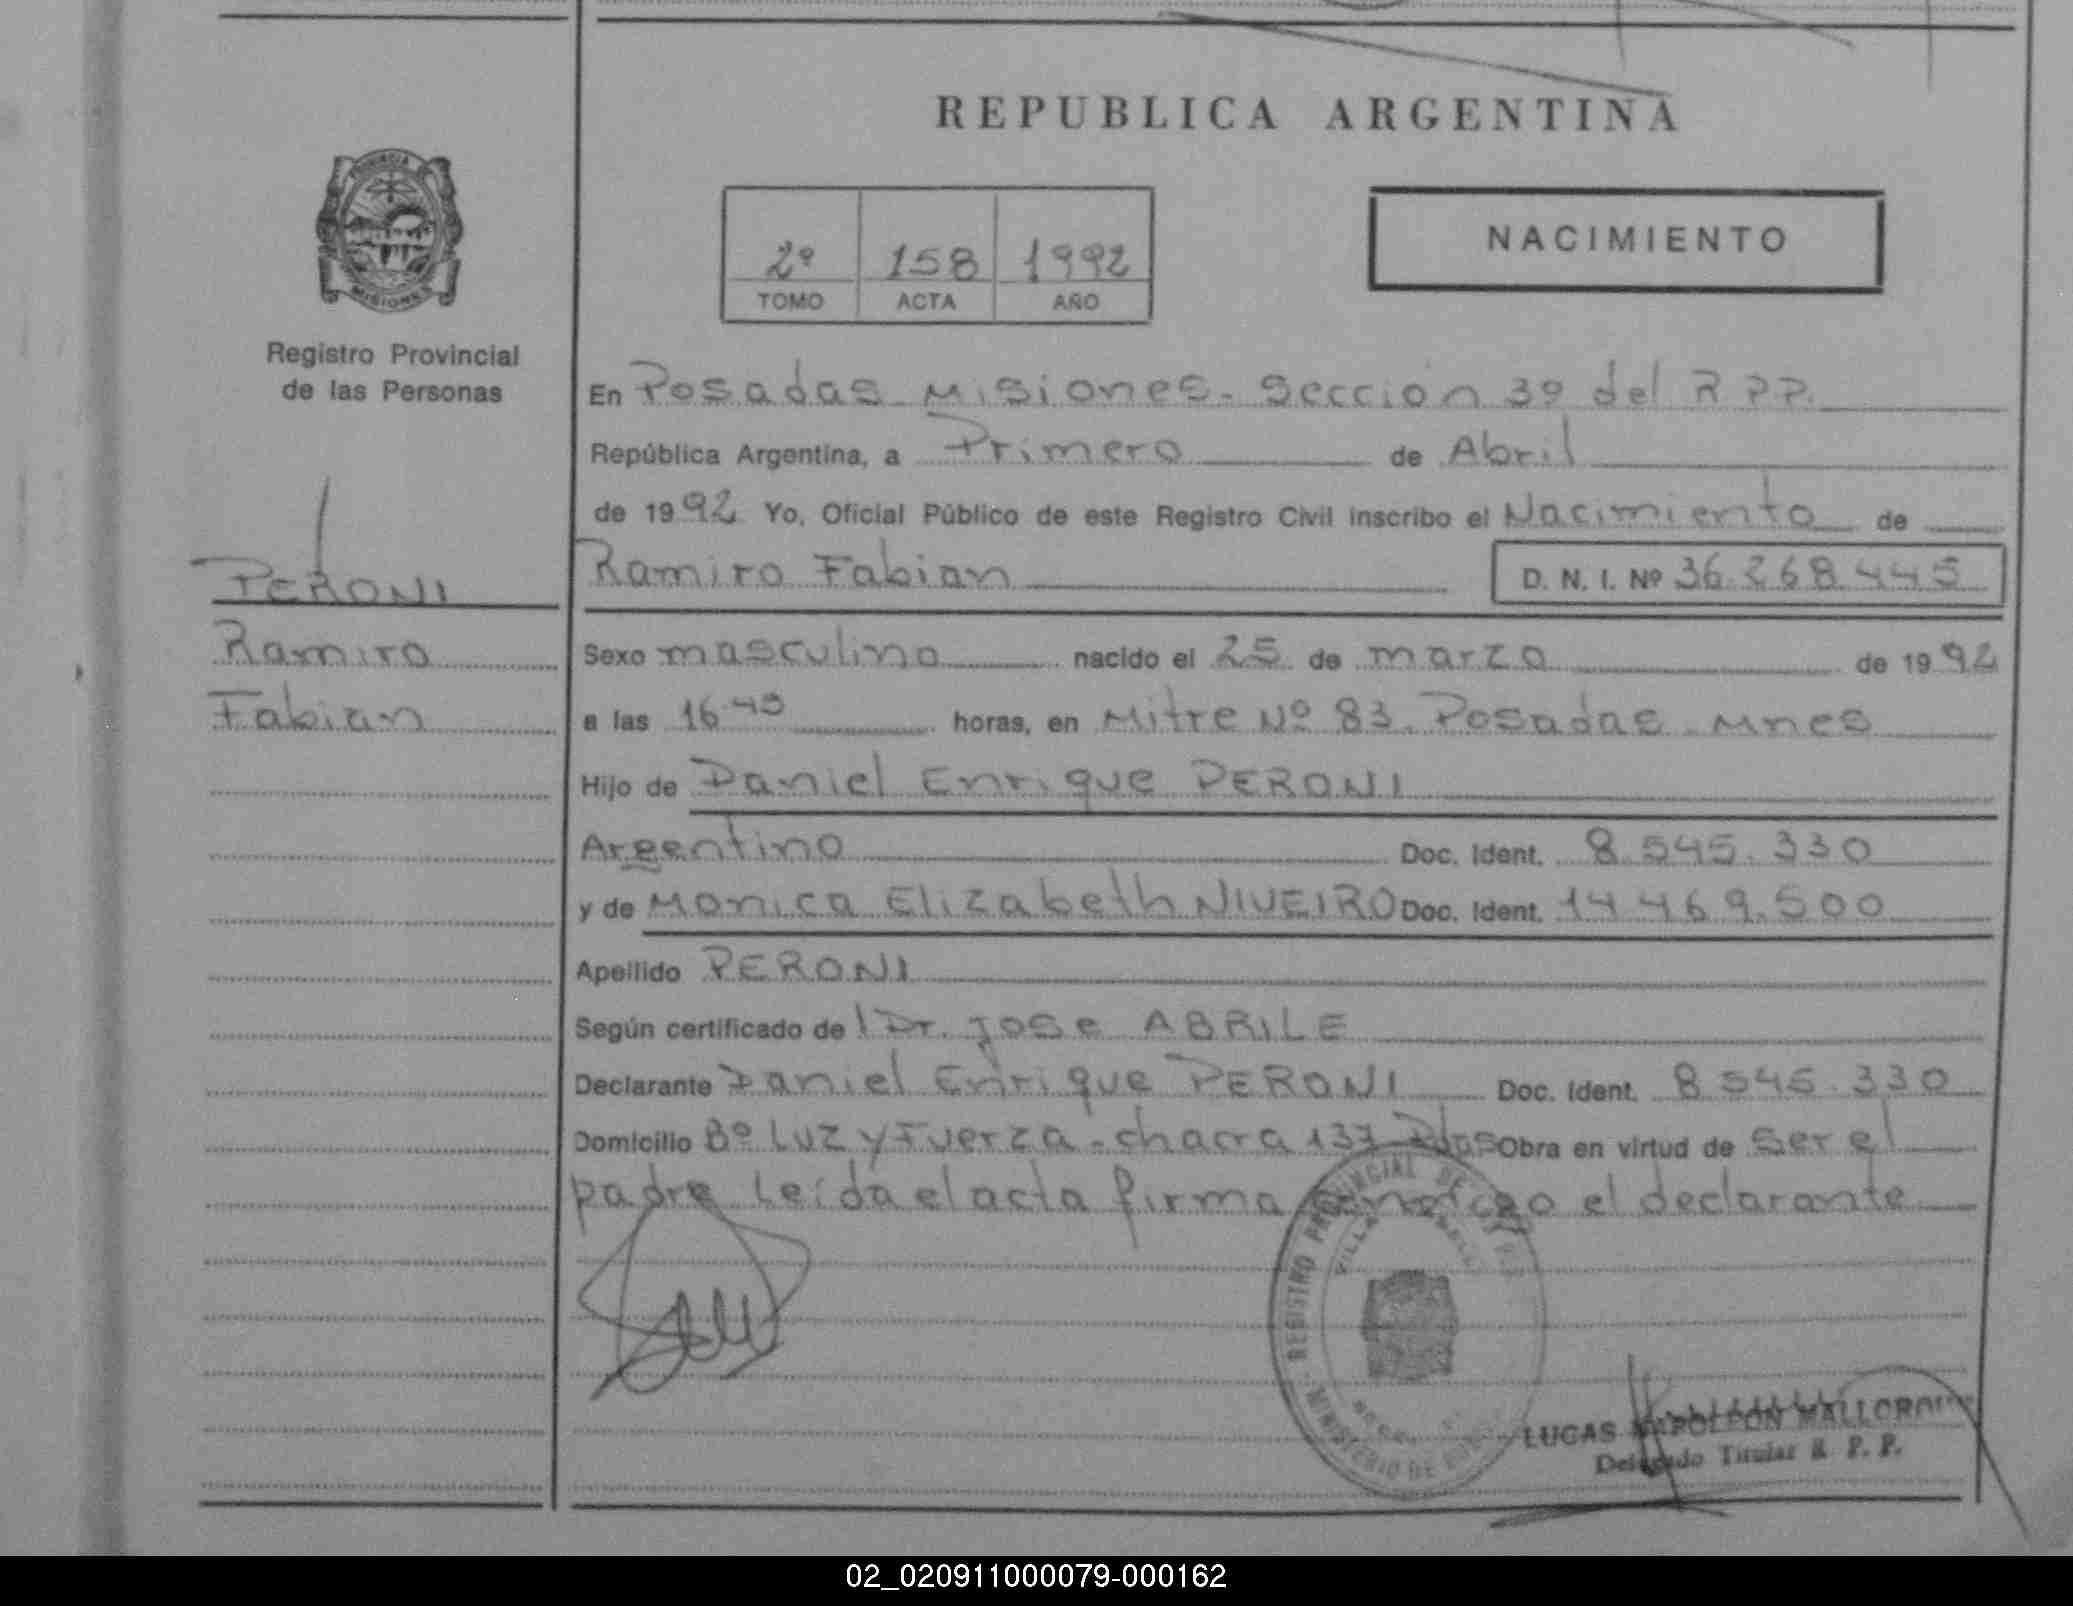 REPUBLICA ARGENTINA
PROVINCIA
MISIONES
Registro Provincial
de las Personas
2º 158 1992
TOMO ACTA AÑO
NACIMIENTO
En Posadas Misiones - Sección 3º del R P P.
República Argentina, a Primero de Abril
de 1992 Yo, Oficial Público de este Registro Civil inscribo el Nacimiento de
PERONI
Ramiro
Fabian
Ramiro Fabian D. N. I. Nº 36.268.445
Sexo masculino nacido el 25 de marzo de 1992
a las 16 45 horas, en Mitre Nº 83. Posadas - Mnes
Hijo de Daniel Enrique PERONI
Argentino Doc. Ident. 8.545.330
y de Monica Elizabeth NIVEIRO Doc. Ident. 14.469.500
Apellido PERONI
Según certificado de l Dr. Jose ABRILE
Declarante Daniel Enrique PERONI Doc. Ident. 8.545.330
Domicilio Bº Luz y Fuerza - chacra 137 Pdas Obra en virtud de ser el
padre Leída el acta firma conmigo el declarante
REGISTRO PROVINCIAL DE
VILLA
MINISTERIO DE
LUCAS NAPOLEON
Delegado Titular R. P. P.
02_020911000079-000162